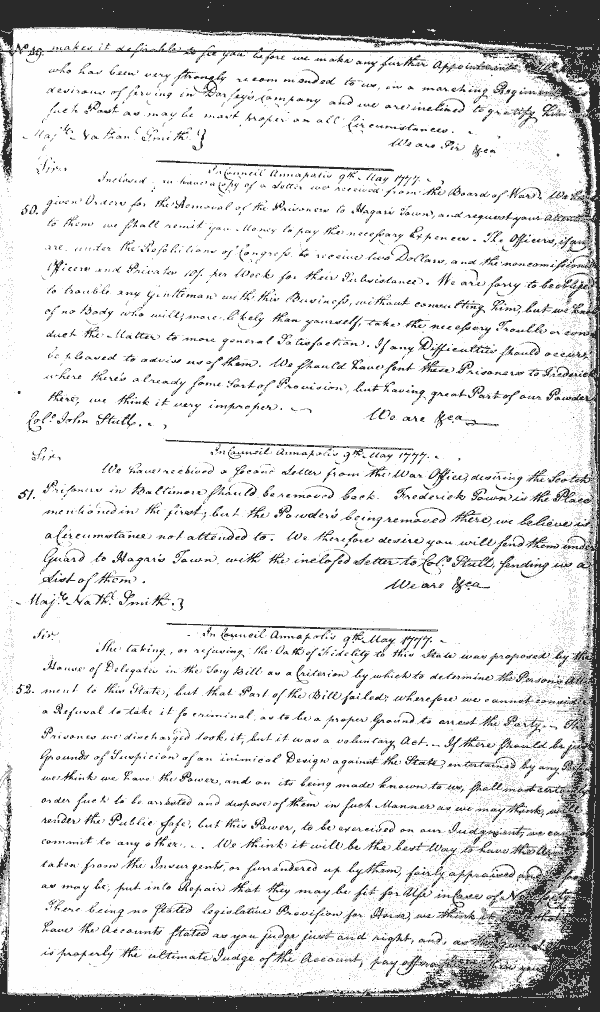 No. 49. makes it desirable to see you before we make any further Appointments
who has been very strongly recommended to us, in a marching Regiment
desirous of serving in Dorsey's Company and we are inclined to gratify him
such Post as may be most proper on all Circumstances.
We are Sir &ca
Majr. Nathan Smith }
In Council Annapolis 9th. May 1777.
Sir
Inclosed, you have a Copy of a Letter we received from the Board of War. We have
50. given Orders for the Removal of the Prisoners to Hagar's Town, and request your Attention
to them we shall remit you Money to pay the necessary Expences. The Officers, if any
are, under the Resolutions of Congress, to receive two Dollars, and the noncommissioned
Officers and Privates 10/. per Week for their Subsistance. We are sorry to be obliged
to trouble any Gentleman with this Business, without consulting him, but we know
of no Body who will, more likely than yourself, take the necessary Trouble or con-
duct the Matter to more general Satisfaction. If any Difficulties should occur,
be pleased to advise us of them. We should have sent these Prisoners to Frederick
where there's already some Sort of Provision, but having great Part of our Powder
there, we think it very improper.
We are &ca
Colo. John Stull.
In Council Annapolis 9th. May 1777.
Sir
We have received a second Letter from the War Office, desiring the Scotch
51. Prisoners in Baltimore should be removed back. Frederick Town is the Place
mentioned in the first, but the Powder's being removed there, we believe is
a Circumstance not attended to. We therefore desire you will send them under
Guard to Hagar's Town, with the inclosed Letter to Colo. Stull, sending us a
List of them.
We are &ca
Majr. Nath. Smith }
In Council Annapolis 9th. May 1777.
Sir
The taking, or refusing, the Oath of Fidelity to this State was proposed by the
House of Delegates in the Tory Bill as a Criterion by which to determine the Persons Attach-
52. ment to this State, but that Part of the Bill failed; wherefore we cannot consider
a Refusal to take it so criminal, as to be a proper Ground to arrest the Party. The
Prisoners we discharged took it, but it was a voluntary Act. If there should be just
Grounds of Suspicion of an inimical Design against the State, entertained by any
we think we have the Power, and on its being made known to us, shall most certainly
order such to be arrested and dispose of them in such Manner as we may think, will
render the Public safe, but this Power, to be exercised on our Judgment, we cannot
commit to any other. We think it will be the best Way to have the Arms
taken from the Insurgents, or surrendered up by them, fairly appraised and
as may be, put into Repair that they may be fit for Use in case of
There being no stated legislative Provision for Horses, we think it
have the Accounts stated as you judge just and right, and, as
is properly the ultimate Judge of the Account, pay off